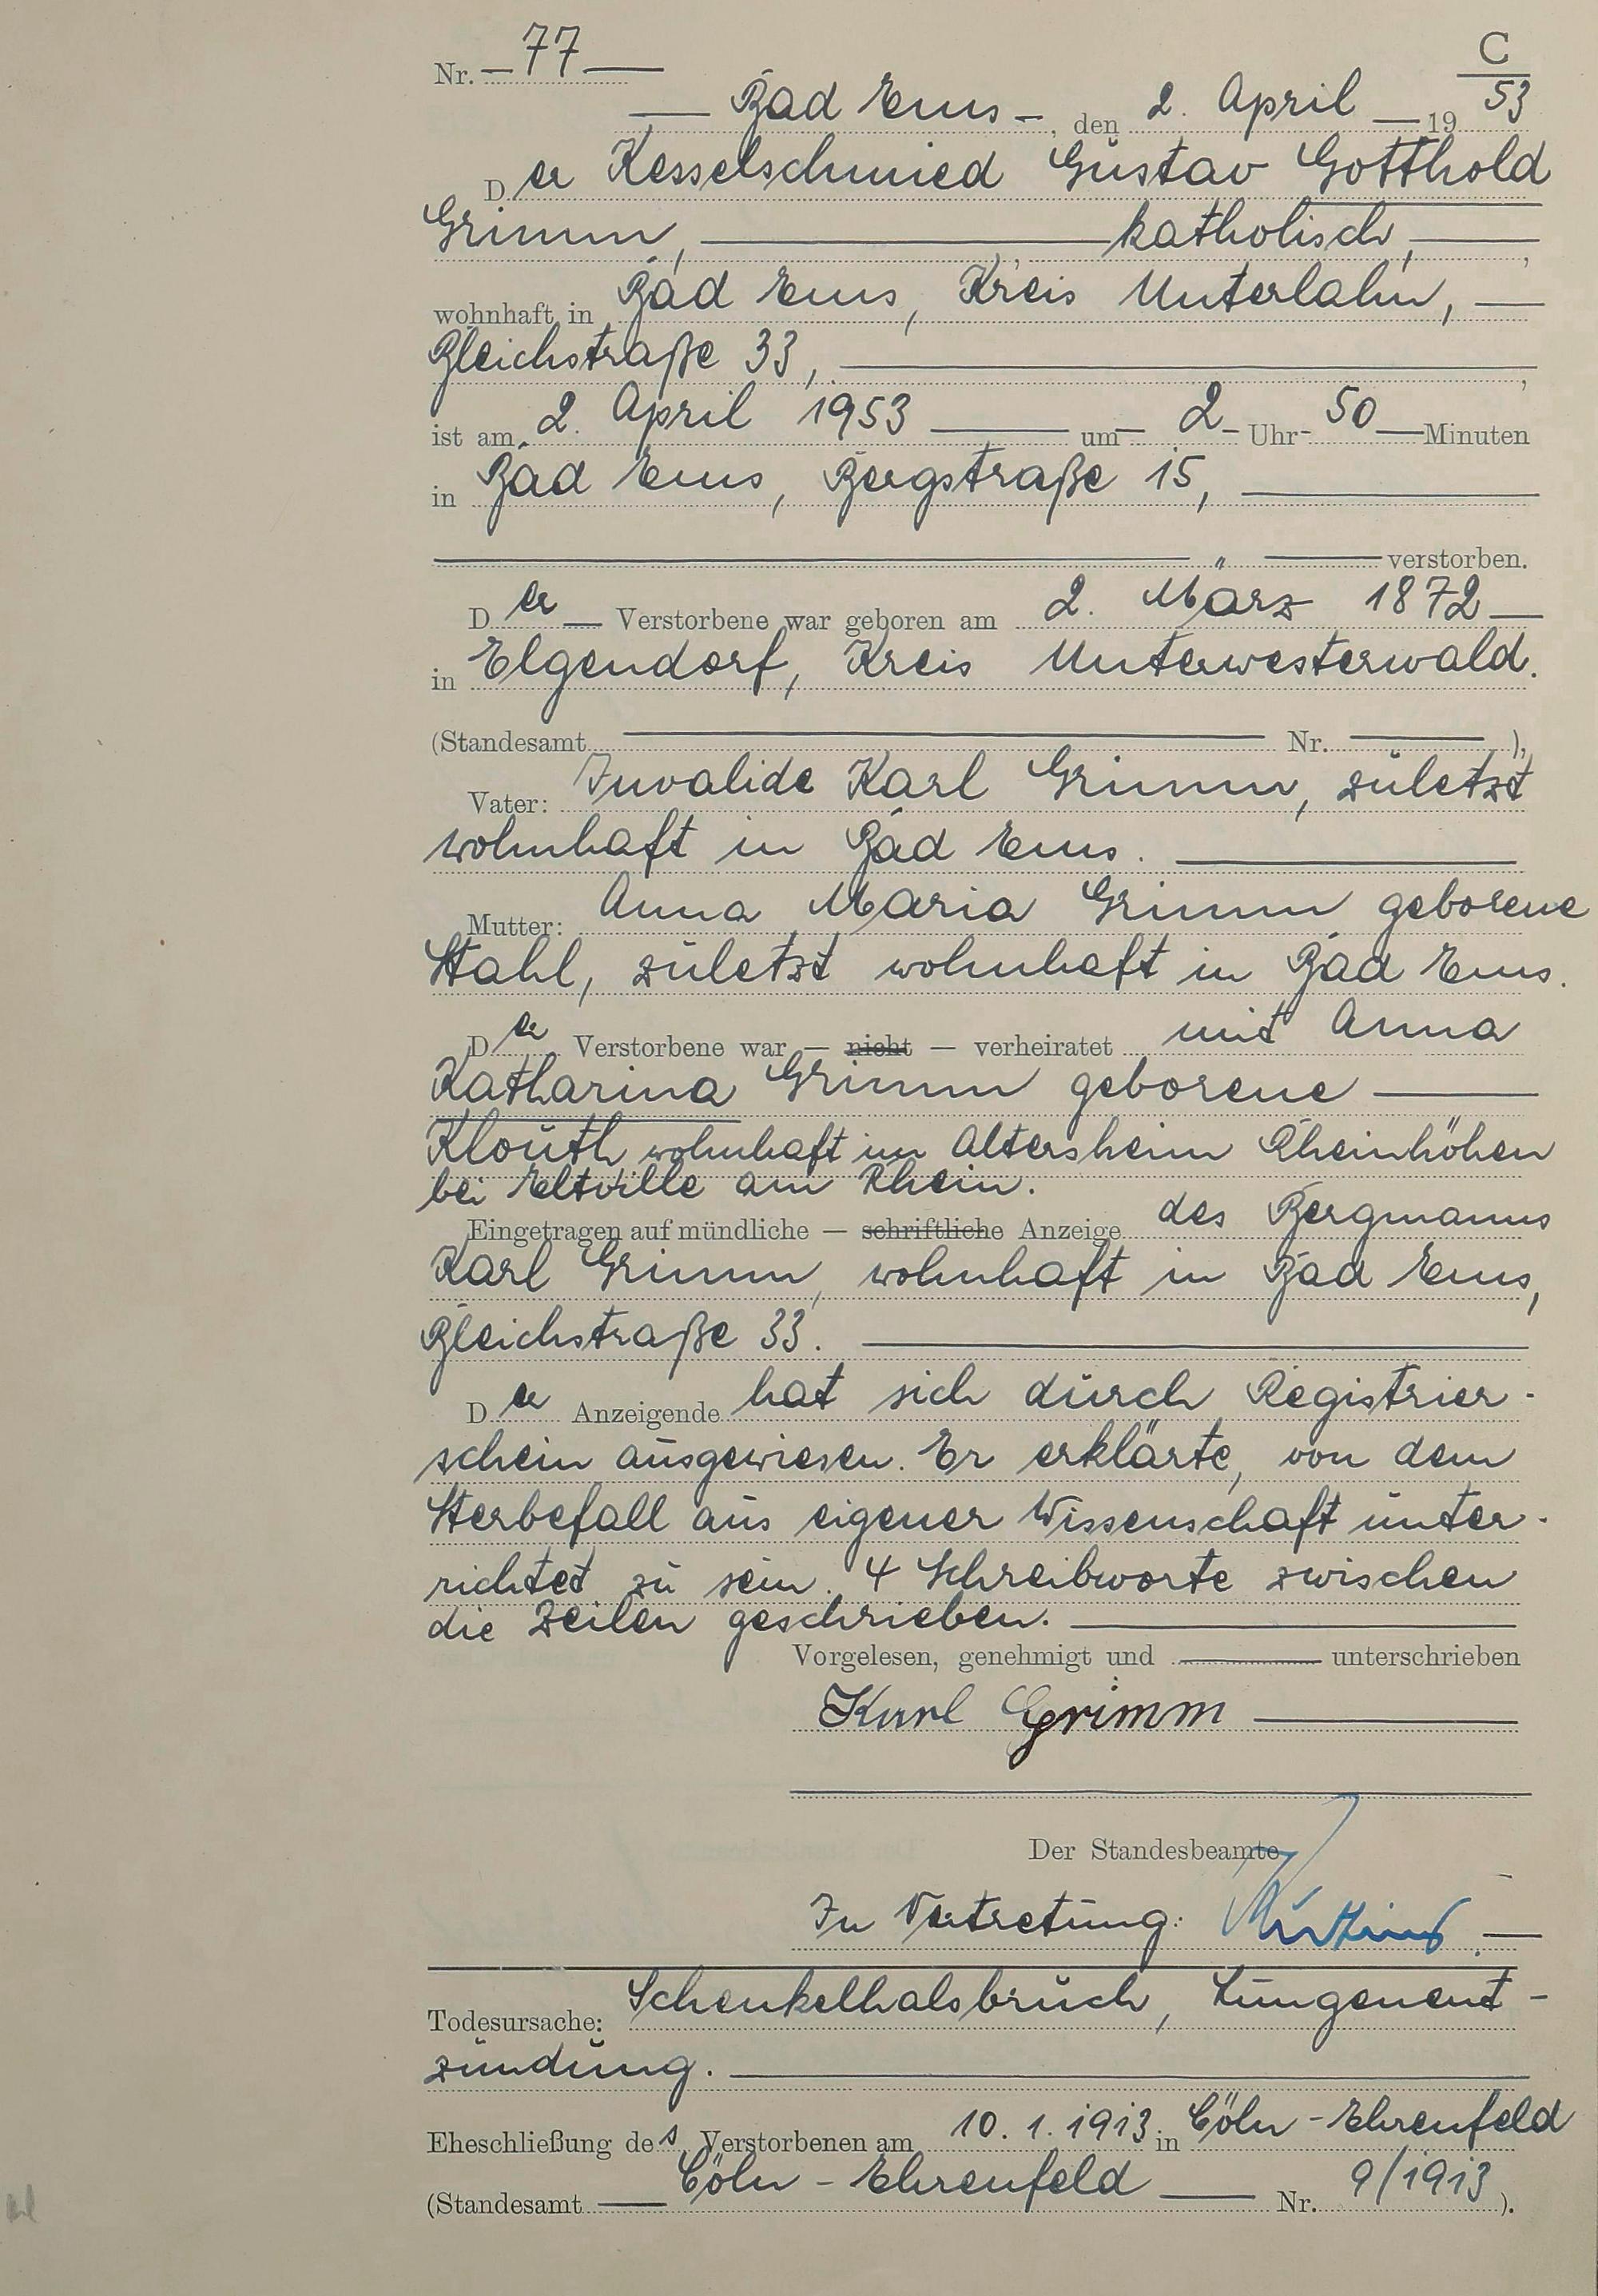 C
Nr. 77
Bad Ems, den 2. April 1953
Der Kesselschmied Gustav Gotthold
Grimm, katholisch,
wohnhaft in Bad Ems, Kreis Unterlahn,
Bleichstraße 33,
ist am 2. April 1953 um 2 Uhr 50 Minuten
in Bad Ems, Bergstraße 15,
" verstorben.
Der Verstorbene war geboren am 2. März 1872
in Elgendorf, Kreis Unterwesterwald.
(Standesamt Nr. ),
Vater: Invalide Karl Grimm, zuletzt
wohnhaft in Bad Ems.
Mutter: Anna Maria Grimm geborene
Stahl, zuletzt wohnhaft in Bad Ems.
Der Verstorbene war — nicht — verheiratet mit Anna
Katharina Grimm geborene
Klouth wohnhaft im Altersheim Rheinhöhen
bei Eltville am Rhein.
Eingetragen auf mündliche — schriftliche Anzeige des Bergmanns
Karl Grimm, wohnhaft in Bad Ems,
Bleichstraße 33.
Der Anzeigende hat sich durch Registrier-
schein ausgewiesen. Er erklärte, von dem
Sterbefall aus eigener Wissenschaft unter-
richtet zu sein. 4 Schreibworte zwischen
die Zeilen geschrieben.
Vorgelesen, genehmigt und unterschrieben
Karl Grimm
Der Standesbeamte
In Vertretung:
Todesursache: Schenkelhalsbruch, Lungenent-
zündung.
Eheschließung des Verstorbenen am 10. 1. 1913 in Cöln-Ehrenfeld
(Standesamt Cöln-Ehrenfeld Nr. 9/1913).